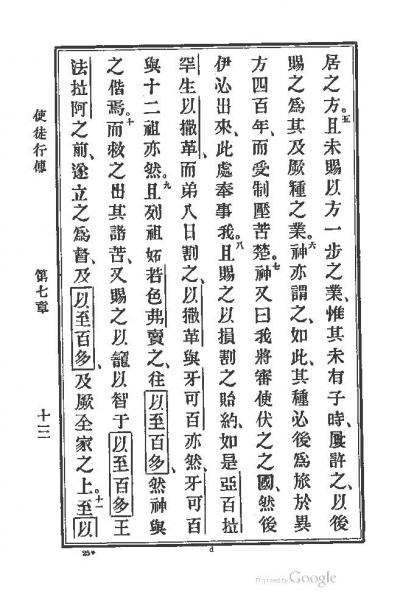 居之方。五且未賜以方一步之業、惟其未有子時、屢許之、以後
賜之爲其及厥種之業。六神亦謂之、如此、其種必後爲旅於異
方四百年、而受制壓苦楚。七神又曰我將審使伏之之國、然後
伊必出來、此處奉事我。八且賜之以損割之貽約、如是亞百拉
罕生以撒革而弟八日割之、以撒革與牙可百亦然、牙可百
與十二祖亦然。九且列祖妬若色弗賣之、往以至百多、然神與
之偕焉。十而救之出其諸苦、又賜之以寵以智于以至百多王
法拉阿之前、遂立之爲督、及以至百多、及厥全家之上。十一至以
使徒行傳
第七章
十二
25*
d
Digitized by Google